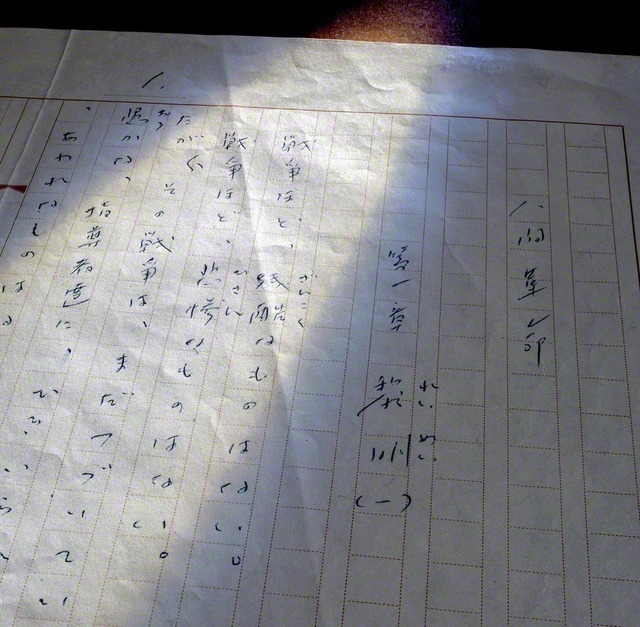 1.
人間革命
第一章 黎明 (一)
れい めい
戦争ほど、残酷なものはない。
ざんこく
戦争ほど、悲惨なものはない。
ひさん
だが、その戦争は、まだつづいてい
愚かな、指導者達に、ひき
おろ
あわれなもの